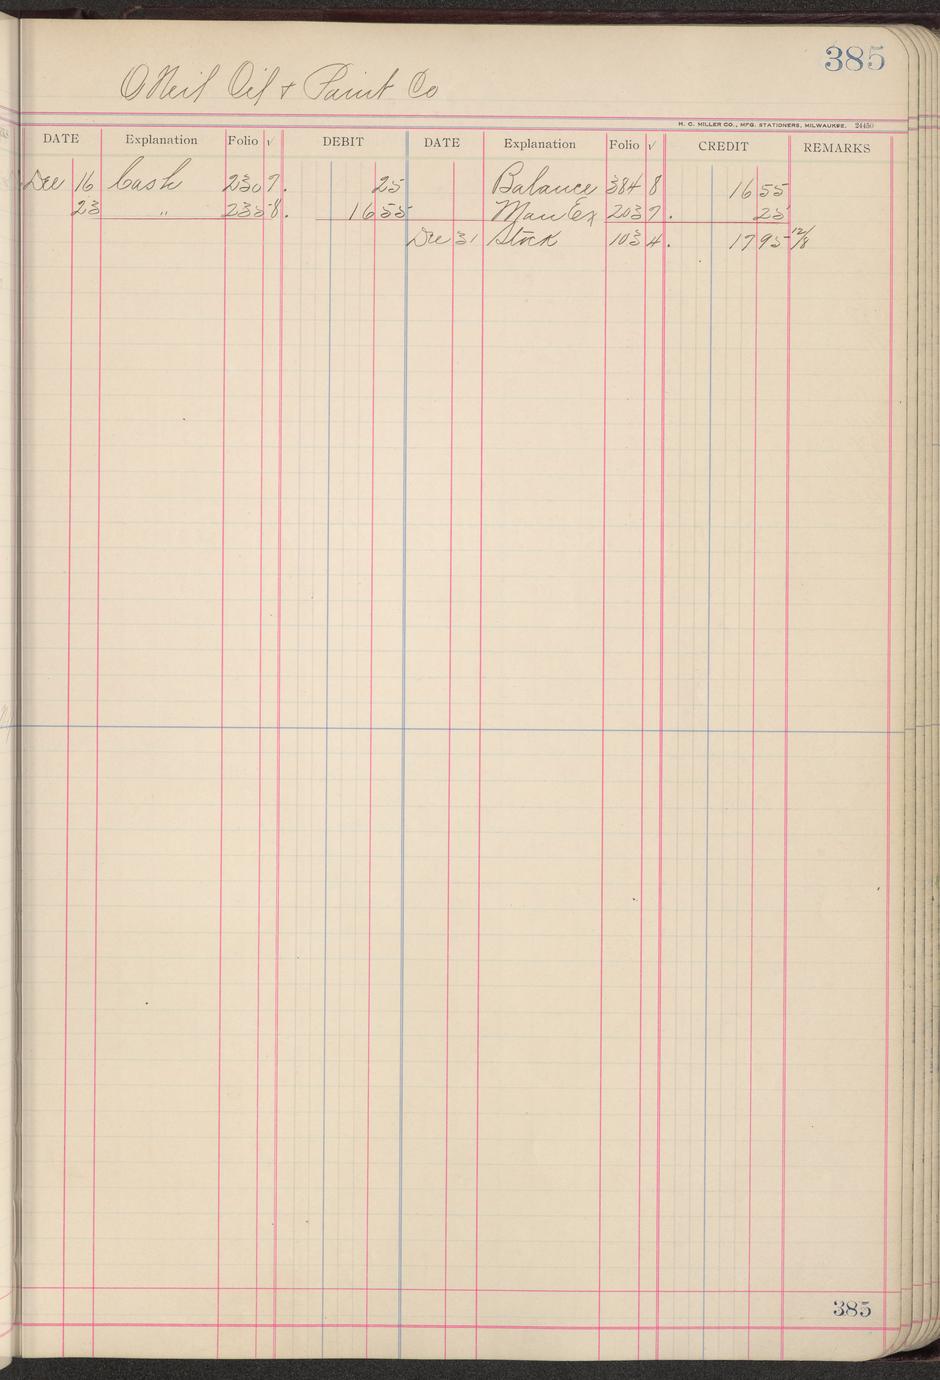 385
O'Neil Oil & Paint Co
H. C. MILLER CO., MFG. STATIONERS, MILWAUKEE. 24450
DATE Explanation Folio √ DEBIT DATE Explanation Folio √ CREDIT REMARKS
Dec 16 Cash 230 7. 25 Balance 384 8 16 55
23 " 235 8. 16 55 Man Ex 203 7. 25
Dec 31 Stock 103 4. 17 95 12/8
385